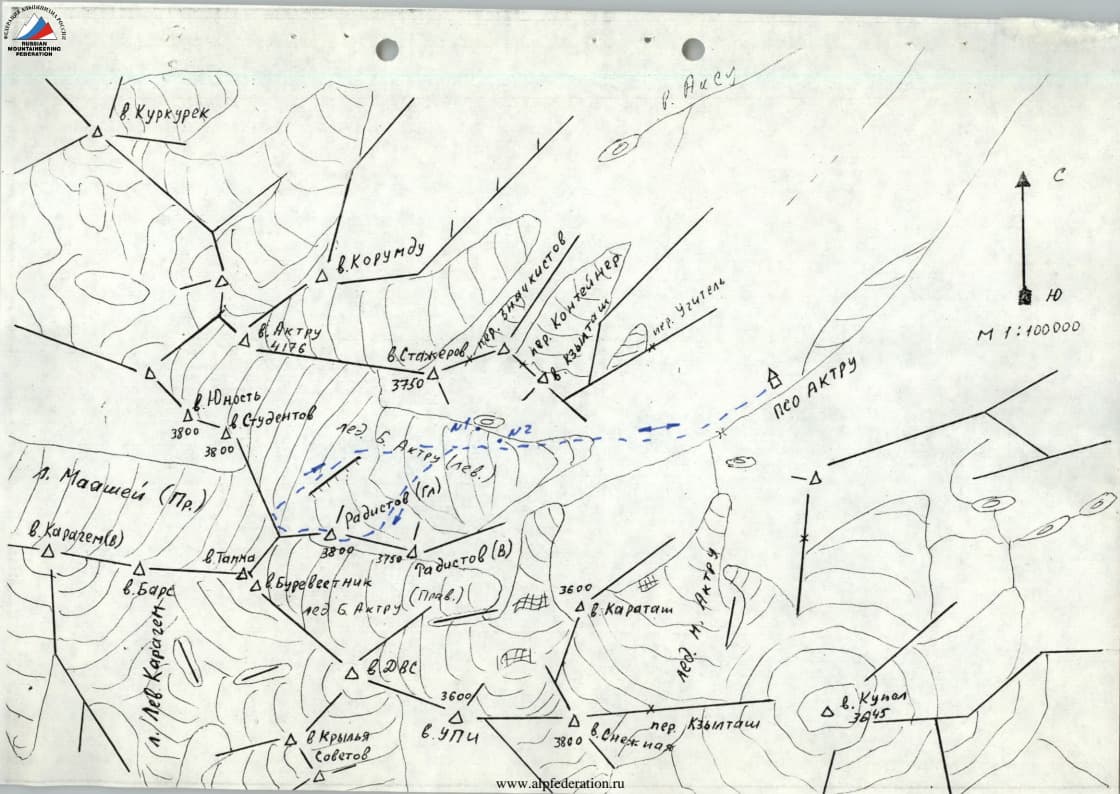 ФЕДЕРАЦИЯ АЛЬПИНИЗМА РОССИИ
RUSSIAN
MOUNTAINEERING
FEDERATION
р. Аксу
в. Куркурек
С
Ю
М 1:100000
в. Корумду
пер. Значкистов
пер. Контейнер
в. Кзылташ
пер. Учитель
в. Актру
4176
в. Стажёров
3750
ПСО АКТРУ
в. Юность
3800
в. Студентов
3800
лед. Б. Актру (лев.)
№1
№2
л. Маашей (Пр.)
Радистов (Гл)
3800
3750
Радистов (В)
в. Карагем (в)
в. Барс
в. Тамма
в. Буревестник
лед Б. Актру (Прав.)
3600
в. Караташ
лед. М. Актру
л. Лев Карагем
в ДВС
3600
в. УПИ
3800
в. Снежная
пер. Кзылташ
в. Купол
3645
в Крылья
Советов
www.alpfederation.ru